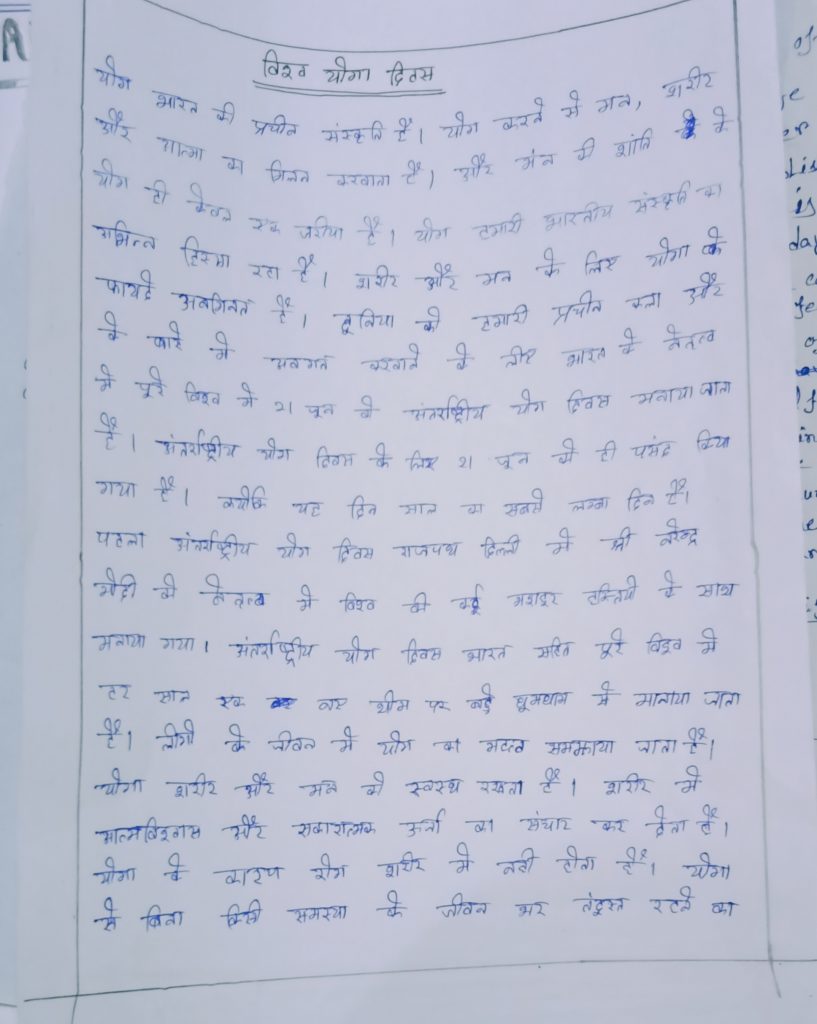 विश्व योगा दिवस
योग भारत की प्राचीन संस्कृति है। योग करने से मन, शरीर
और आत्मा का मिलन करवाता है। और मन की शांति के
योग ही केवल एक जरीया है। योग हमारी भारतीय संस्कृति का
अभिन्न हिस्सा रहा है। शरीर और मन के लिए योगा के
फायदे अनगिनत है। दुनिया को हमारी प्राचीन कला और
के बारे में अवगत करवाने के लिए भारत के नेतृत्व
में पूरे विश्व में 21 जून को अंतर्राष्ट्रीय योग दिवस मनाया जाता
है। अंतर्राष्ट्रीय योग दिवस के लिए 21 जून को ही पसंद किया
गया है। क्योंकि यह दिन साल का सबसे लम्बा दिन है।
पहला अंतर्राष्ट्रीय योग दिवस राजपथ दिल्ली में श्री नरेन्द्र
मोदी के नेतृत्व में विश्व की कई मशहूर हस्तियों के साथ
मनाया गया। अंतर्राष्ट्रीय योग दिवस भारत सहित पूरे विश्व में
हर साल एक नए थीम पर बड़े धूमधाम से मानाया जाता
है। लोगों के जीवन में योग का महत्व समझाया जाता है।
योगा शरीर और मन को स्वस्थ रखता है। शरीर में
आत्मविश्वास और सकारात्मक ऊर्जा का संचार कर देता है।
योगा के कारण रोग शरीर में नही होता है। योगा
से बिना किसी समस्या के जीवन भर तंदुरुस्त रहने का